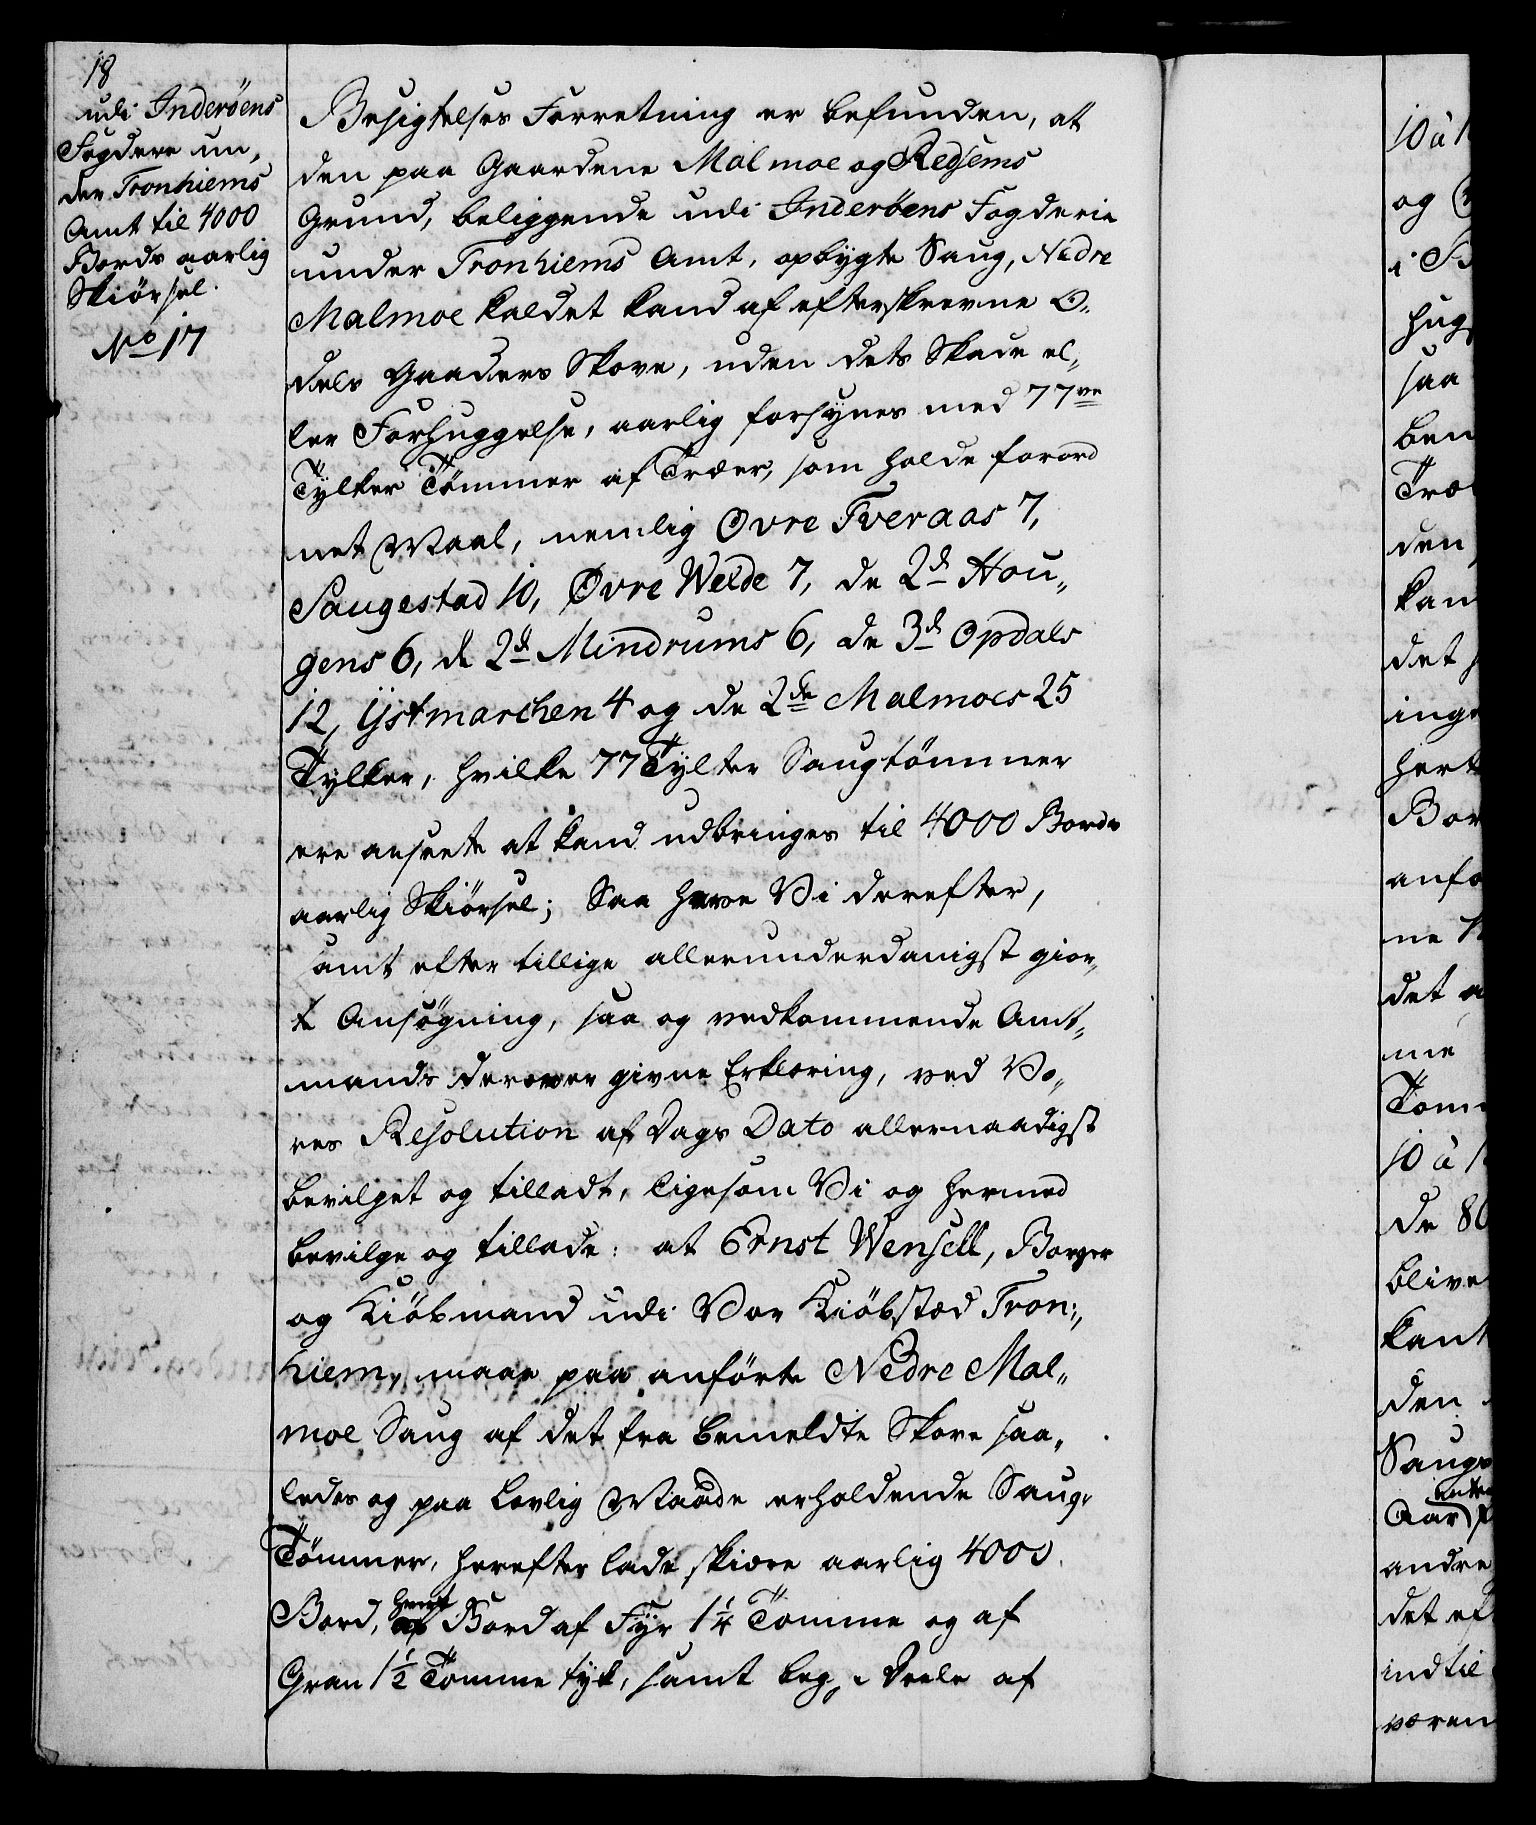 18
udi Inderöens
Fogderie un„
der Tronhiems
Amt til 4000
Bords aarlig
Skiörsel.
No 17
Besigtelses Forretning er befunden, at
den paa Gaardene Malmoe og Redsems
Grund, beliggende udi Inderöens Fogderie
under Tronhiems Amt, opbygte Saug, Nedre
Malmoe kaldet kand af efterskrevne O„
dels Gaarders Skove, uden dets Skade el„
ler Forhuggelse, aarlig forsynes med 77ve
Tylter Tömmer af Træer, som holde forord
net Maal, nemlig Ovre Tveraas 7,
Saugestad 10, Øvre Welde 7, de 2de Hou„
gens 6, de 2de Mindrums 6, de 3de Opdals
12, Ystmarchen 4 og de 2de Malmoes 25
Tylter, hvilke 77 Tylter Saugtömmer
ere anseete at kand udbringes til 4000 Bords
aarlig Skiörsel; Saa have Vi derefter,
samt efter tillige allerunderdanigst gior„
te Ansögning, saa og vedkommende Amt„
mands derover givne Erklæring, ved Vo„
res Resolution af Dags Dato allernaadigst
bevilget og tilladt, ligesom Vi og hermed
bevilge og tillade: at Ernst Wensell, Borger
og Kiöbmand udi Vor Kiöbstæd Tron„
hiem, maae paa anförte Nedre Mal„
moe Saug af det fra bemeldte Skove saa„
ledes og paa lovlig Maade erholdende Saug„
Tömmer, herefter lade skiære aarlig 4000
Bord, hvert Bord af Fyr 1 1/4 Tomme og af
Gran 1 1/2 Tomme tyk, samt beg„e Deele af
10 à 1
og
i B
hug
saa
ben
Træ
den
kan
det
ing
hert
Bor
anfö
ne
det
me
Tom
10 à 1
de 80
blive
kant
den
Saugs
Aar
andre
det ef
indtil
væren